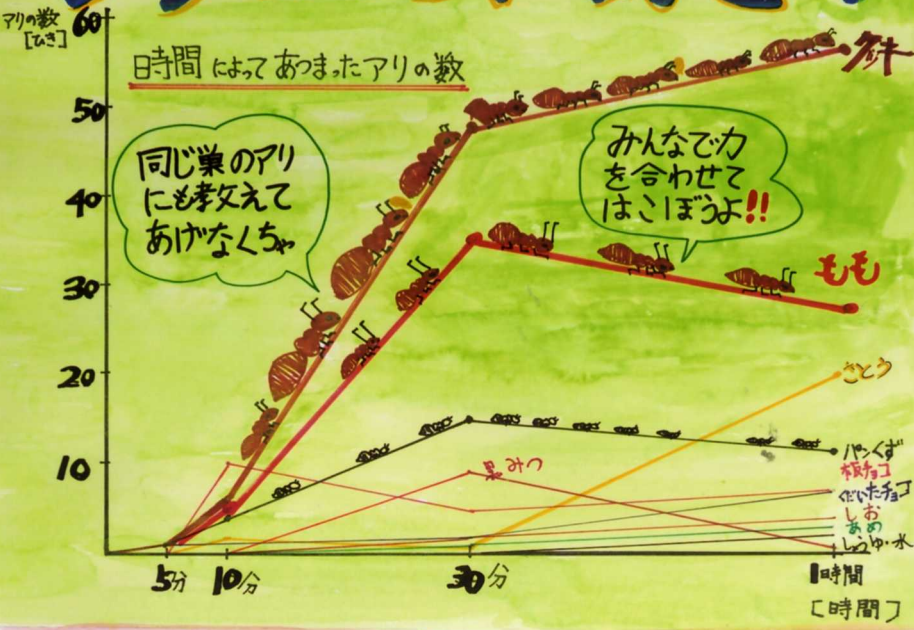 アリの数
[ひき]
60
50
40
30
20
10
時間によってあつまったアリの数
同じ巣のアリ
にも教えて
あげなくちゃ
みんなで力
を合わせて
はこぼうよ!!
もも
さとう
パンくず
板チョコ
くだいたチョコ
しお
あめ
しょうゆ・水
黒みつ
5分
10分
30分
1時間
[時間]